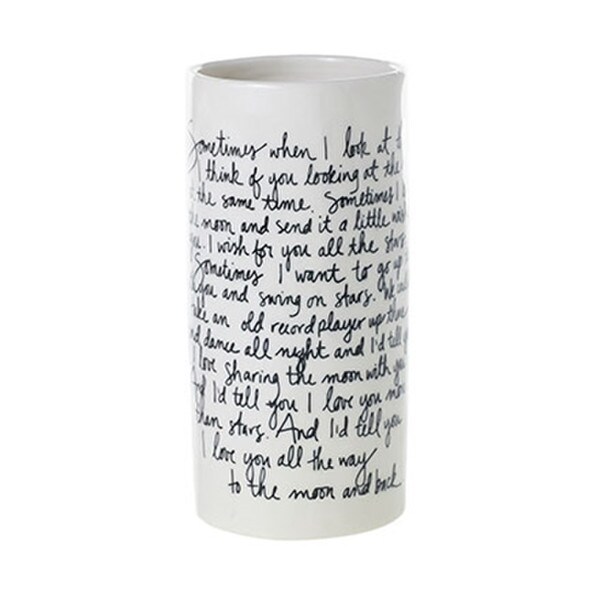 Sometimes when I look at
I think of you looking at the
the same time. Sometimes I
moon and send it a little
I wish for you all the stars
Sometimes I want to go up
you and swing on stars. We
an old record player up there
dance all night and I'd tell
I love sharing the moon with you
I'd tell you I love you more
than stars. And I'd tell you
I love you all the way
to the moon and back.